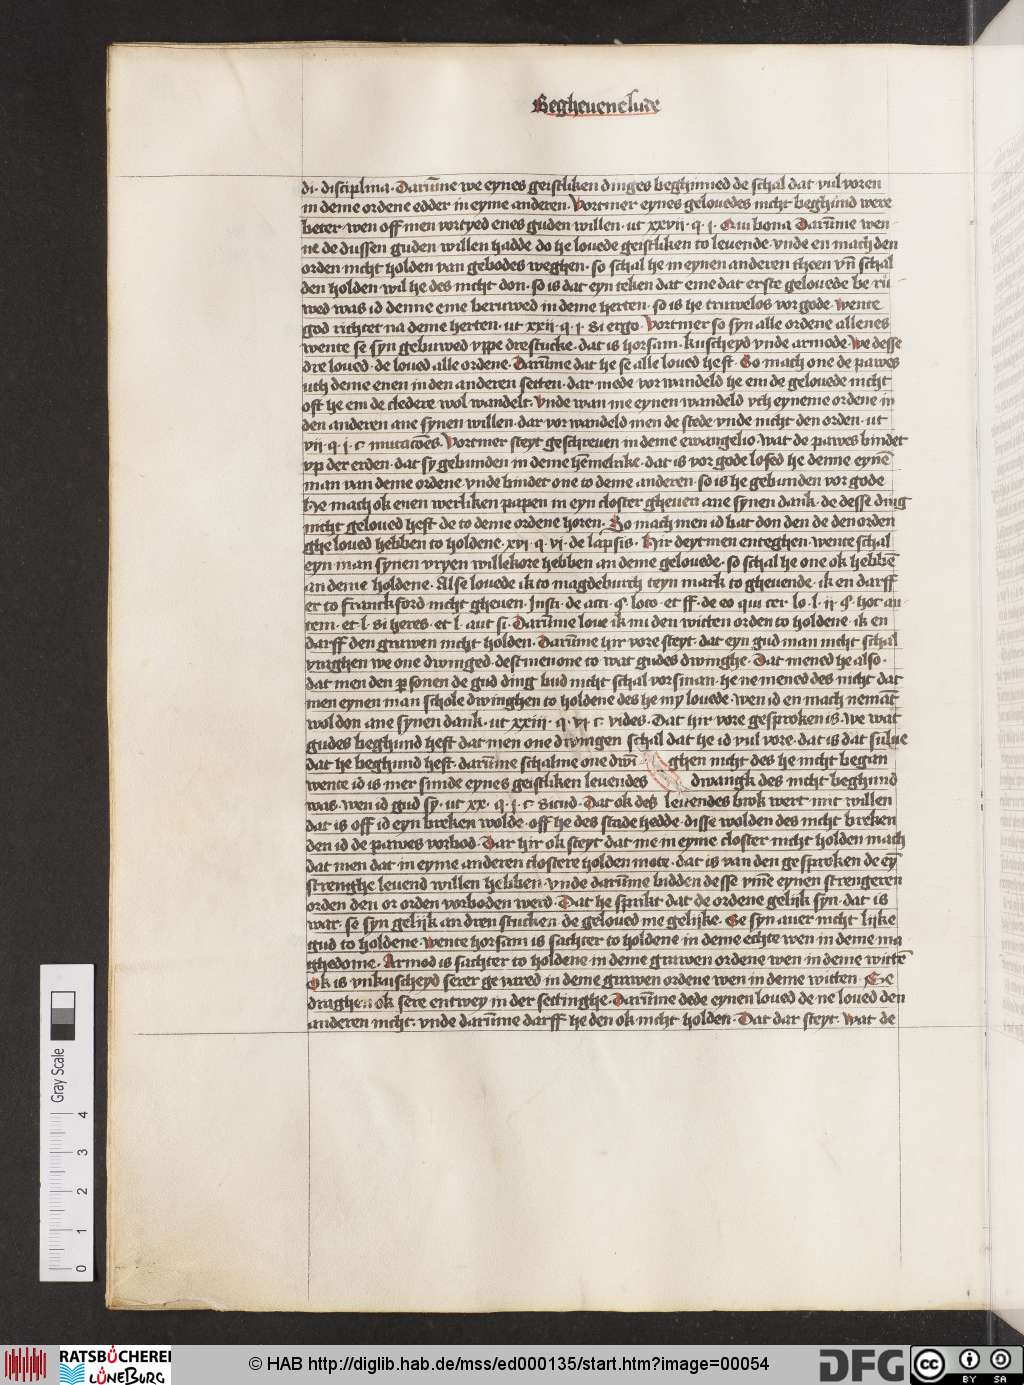 Begheuenelude
di. disciplina. Darūme we eynes geistliken dinges beghinned de schal dat vul voren
in deme ordene edder in eyme anderen. Vortmer eynes gelouedes nicht beghind were
beter. wen off men vortyed enes guden willen. ut xxvii. q. i. Qui bona Darūme wen
ne de dussen guden willen hadde do he louede geistliken to leuende. vnde en mach den
orden nicht holden van gebodes weghen. so schal he in eynen anderen theen vn̄ schal
den holden. wil he des nicht don. so is dat eyn teken dat eme dat erste gelouede be rü
wed was id denne eme beruwed in deme herten. so is he truwelos vor gode. wente
god richtet na deme herten. ut xxii. q. i. Si ergo. Vortmer so syn alle ordene allenes
wente se syn gebuwed vppe drestucke. dat is horsam. kuscheyd vnde armode. We desse
dre loued. de loued alle ordene. Darūme dat he se alle loued heft. So mach one de pawes
uth deme enen in den anderen setten. dar mede vor wandeld he em de gelouede nicht
oft he em de cledere wol wandelt. Vnde wan me eynen wandeld vth eyneme ordene in
den anderen ane synen willen. dar vor wandeld men de stede vnde nicht den orden. ut
vii. q. i. c. mutacōes. Vortmer steyt geschreuen in deme ewangelio. wat de pawes bindet
vp der erden. dat sy gebunden in deme hēmelrike. dat is vor gode losed he denne eynē
man van deme ordene. vnde bindet one to deme anderen. so is he gebunden vor gode
He mach ok enen werliken papen in eyn closter gheuen ane synen dank. de desse ding
nicht geloued heft de to deme ordene horen. So mach men id bat don den de den orden
ghe loued hebben to holdene. xvi. q. vi. de lapsis. Hir deyt men enteghen. wente schal
eyn man synen vryen willekore hebben an deme gelouede. so schal he one ok hebbē
an deme holdene. Alse louede ik to magdeburch teyn mark to gheuende. ik en darff
er to franckford nicht gheuen. Insti. de acti. §. loco. et ff. de eo qui cer lo. l. ii. §. hor au
tem. et. l. si heres. et l. aut si. Darūme loue ik mi den witten orden to holdene. ik en
darff den grawen nicht holden. Darūme hir vore steyt. dat eyn gud man nicht schal
vraghen we one dwinged. dest men one to wat gudes dwinghe. Dat mened he also.
dat men den personen de gud ding bud nicht schal vorsman. he ne mened des nicht dat
men eynen man schole dwinghen to holdene des he my louede. wen id en mach nemāt
wol don ane synen dank. ut xxiii. q. vi. c. vides. Dat hir vore gesproken is. We wat
gudes beghind heft dat men one dwingen schal dat he id vul vore. dat is dat sulue
dat he beghind heft. darūme schalme one dwi ghen nicht des he nicht began
wente id is mer sunde eynes geistliken leuendes dwangk des nicht beghind
was. wen id gud sy. ut xx. q. i. c. Sicud. Dat ok des leuendes brok wert mit willen
dat is off id eyn breken wolde. off he des stade hedde. disse wolden des nicht breken
den id de pawes vorbod. Dar hir ok steyt dat me in eyme closter nicht holden mach
dat men dat in eyme anderen clostere holden mote. dat is van den gesproken de ey̅
strenghe leuend willen hebben. vnde darūme bidden desse vm̄e eynen strengeren
orden den or orden vorboden werd. Dat he sprikt dat de ordene gelijk syn. dat is
war. se syn gelijk an dren stucken. de geloued me gelijke. Se syn auer nicht lijke
gud to holdene. wente horsam is sachter to holdene in deme echte wen in deme ma
ghedome. Armod is sachter to holdene in deme grawen ordene wen in deme wittē
Ok is vnkuscheyd serer ge vared in deme grawen ordene wen in deme witten. Se
draghen ok sere entwey in der settinghe. Darūme dede eynen loued de ne loued den
anderen nicht. vnde darūme darff he den ok nicht holden. Dat dar steyt. Wat de
Gray Scale
4
3
2
1
0
RATSBÜCHEREI
LÜNEBURG
© HAB http://diglib.hab.de/mss/ed000135/start.htm?image=00054
DFG
cc
BY SA